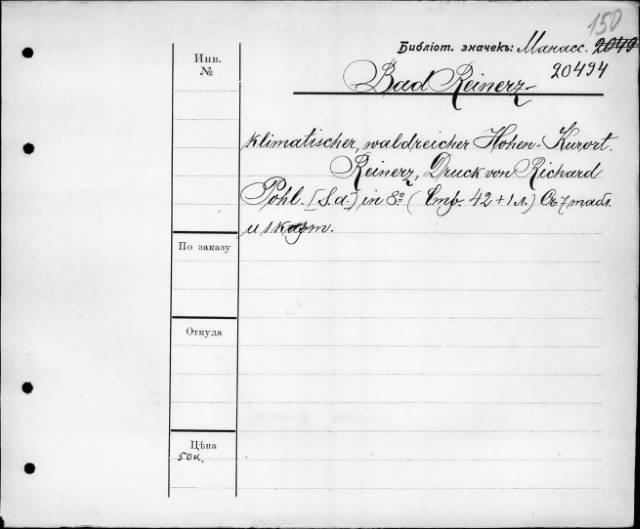 150
Библіот. значекъ: Манасс. 2049
20494
Инв.
№
Bad Reinerz-
klimatischer, waldreicher Höhen-Kurort.
Reinerz, Druck von Richard
Pohl. [S.a.] in 8º (Стр. 42+1 л.) Съ 7 табл.
и 1 карт.
По заказу
Откуда
Цѣна
50 к.